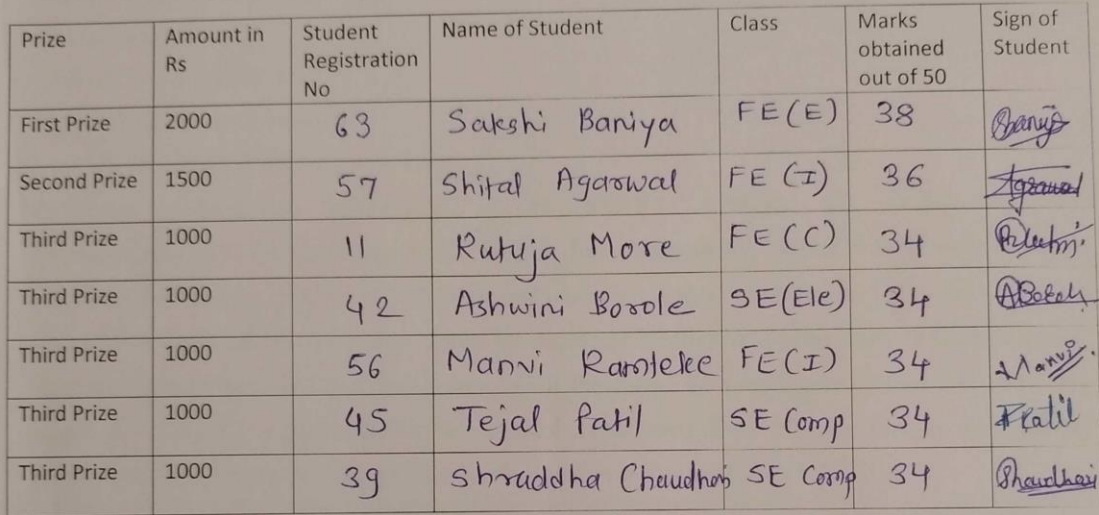 Prize Amount in Rs Student Registration No Name of Student Class Marks obtained out of 50 Sign of Student
First Prize 2000 63 Sakshi Baniya FE(E) 38
Second Prize 1500 57 Shital Agarwal FE (I) 36 Agrawal
Third Prize 1000 11 Rutuja More FE (C) 34
Third Prize 1000 42 Ashwini Borole SE(Ele) 34
Third Prize 1000 56 Manvi Ramteke FE(I) 34 Manvi
Third Prize 1000 45 Tejal Patil SE Comp 34 Patil
Third Prize 1000 39 Shraddha Chaudhari SE Comp 34